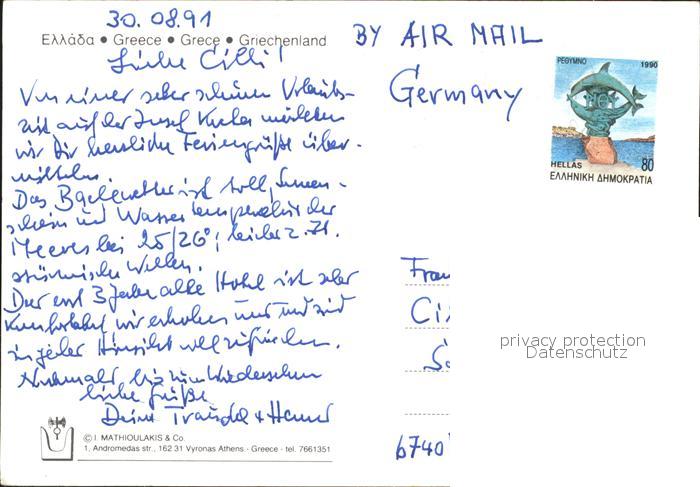 30.08.91
Ελλάδα • Greece • Grece • Griechenland
Liebe Cilli!
Von einer sehr schönen Urlaubs-
zeit auf der Insel Kreta möchten
wir Dir herzliche Feriengrüße über-
mitteln.
Das Badewetter ist toll, Sonnen-
schein und Wassertemperatur des
Meeres bei 25/26°; leider z. Zt.
stürmische Wellen.
Das erst 3 Jahre alte Hotel ist sehr
komfortabel, wir erholen uns und sind
in jeder Hinsicht voll zufrieden.
Nochmals bis zum Wiedersehen
liebe Grüße
Deine Traudel +
© I. MATHIOULAKIS & Co.
1, Andromedas str., 162 31 Vyronas Athens - Greece - tel. 7661351
BY AIR MAIL
Germany
ΡΕΘΥΜΝΟ 1990
HELLAS 80
ΕΛΛΗΝΙΚΗ ΔΗΜΟΚΡΑΤΙΑ
Frau
6740
privacy protection
Datenschutz